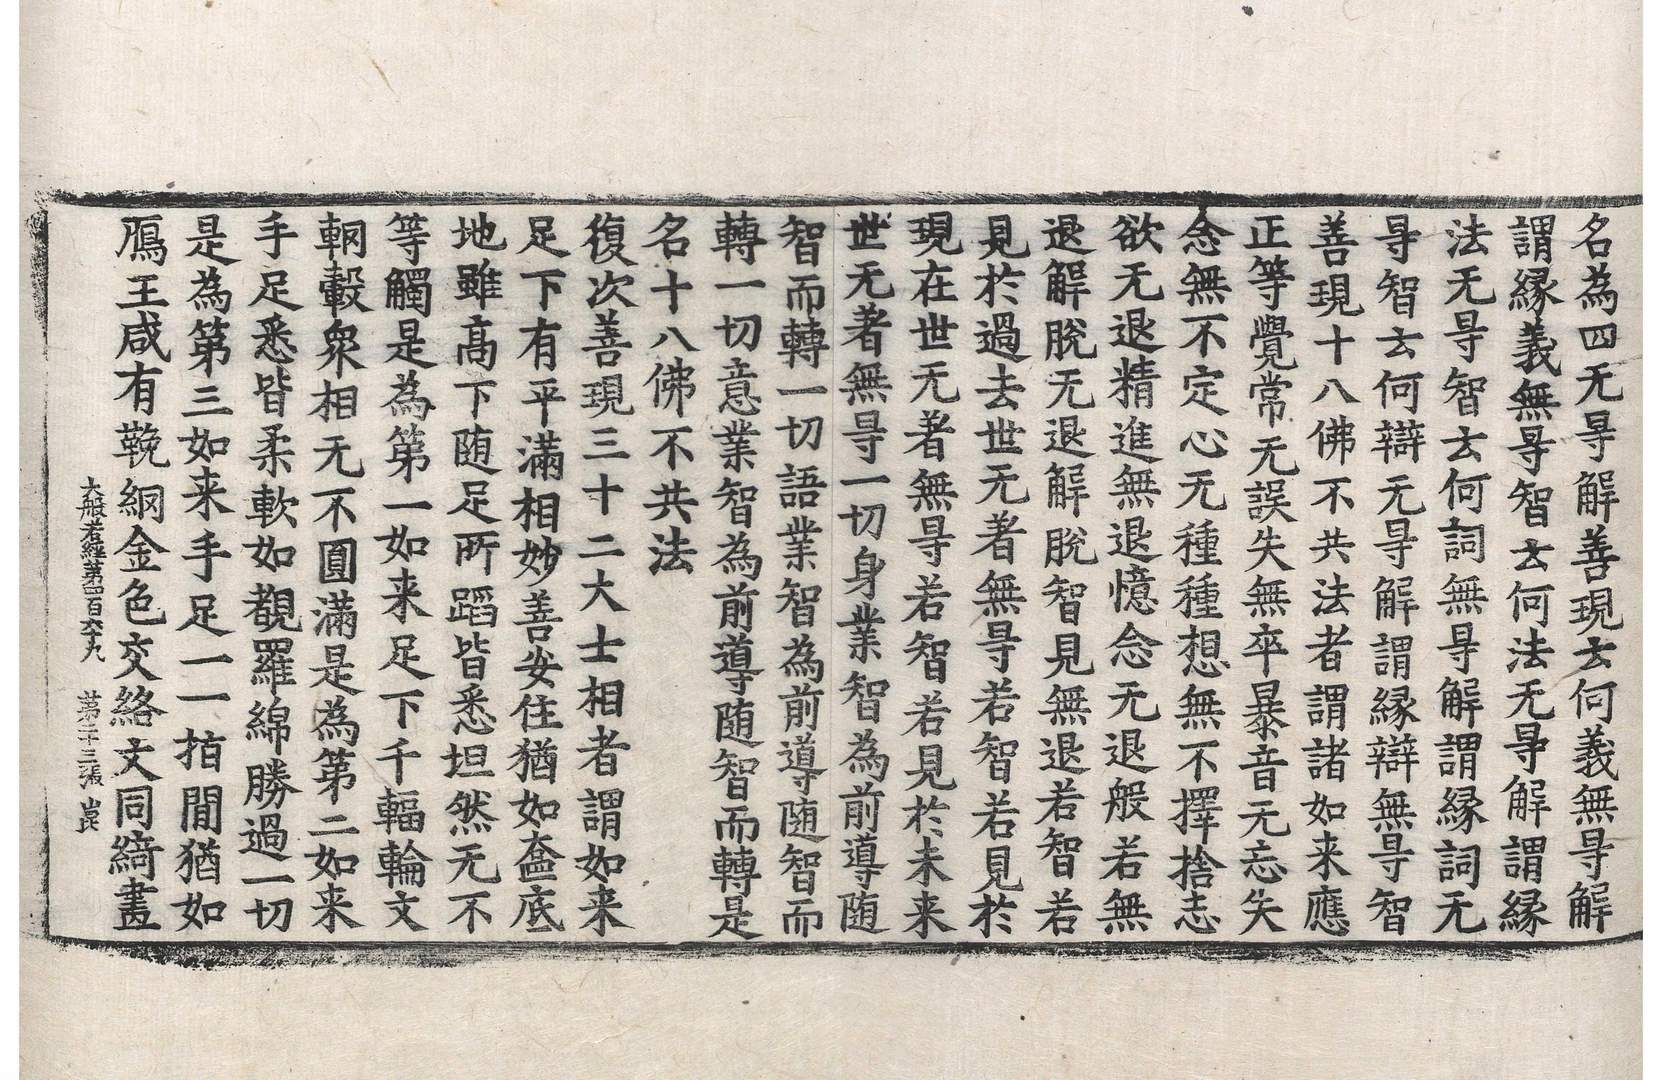 名為四无㝵解善現云何義無㝵解
謂縁義無㝵智云何法无㝵解謂縁
法无㝵智云何詞無㝵解謂縁詞无
㝵智云何辯无㝵解謂縁辯無㝵智
善現十八佛不共法者謂諸如来應
正等覺常无誤失無卒暴音无忘失
念無不定心无種種想無不擇捨志
欲无退精進無退憶念无退般若無
退解脫无退解脫智見無退若智若
見於過去世无著無㝵若智若見於
現在世无著無㝵若智若見於未来
世无著無㝵一切身業智為前導随
智而轉一切語業智為前導随智而
轉一切意業智為前導随智而轉是
名十八佛不共法
復次善現三十二大士相者謂如来
足下有平滿相妙善安住猶如奩底
地雖高下随足所蹈皆悉坦然无不
等觸是為第一如来足下千輻輪文
輞轂衆相无不圓滿是為第二如来
手足悉皆柔軟如覩羅綿勝過一切
是為第三如来手足一一指間猶如
鴈王咸有鞔網金色交絡文同綺畫
大般若經第四百六十九 第二十三張 崑